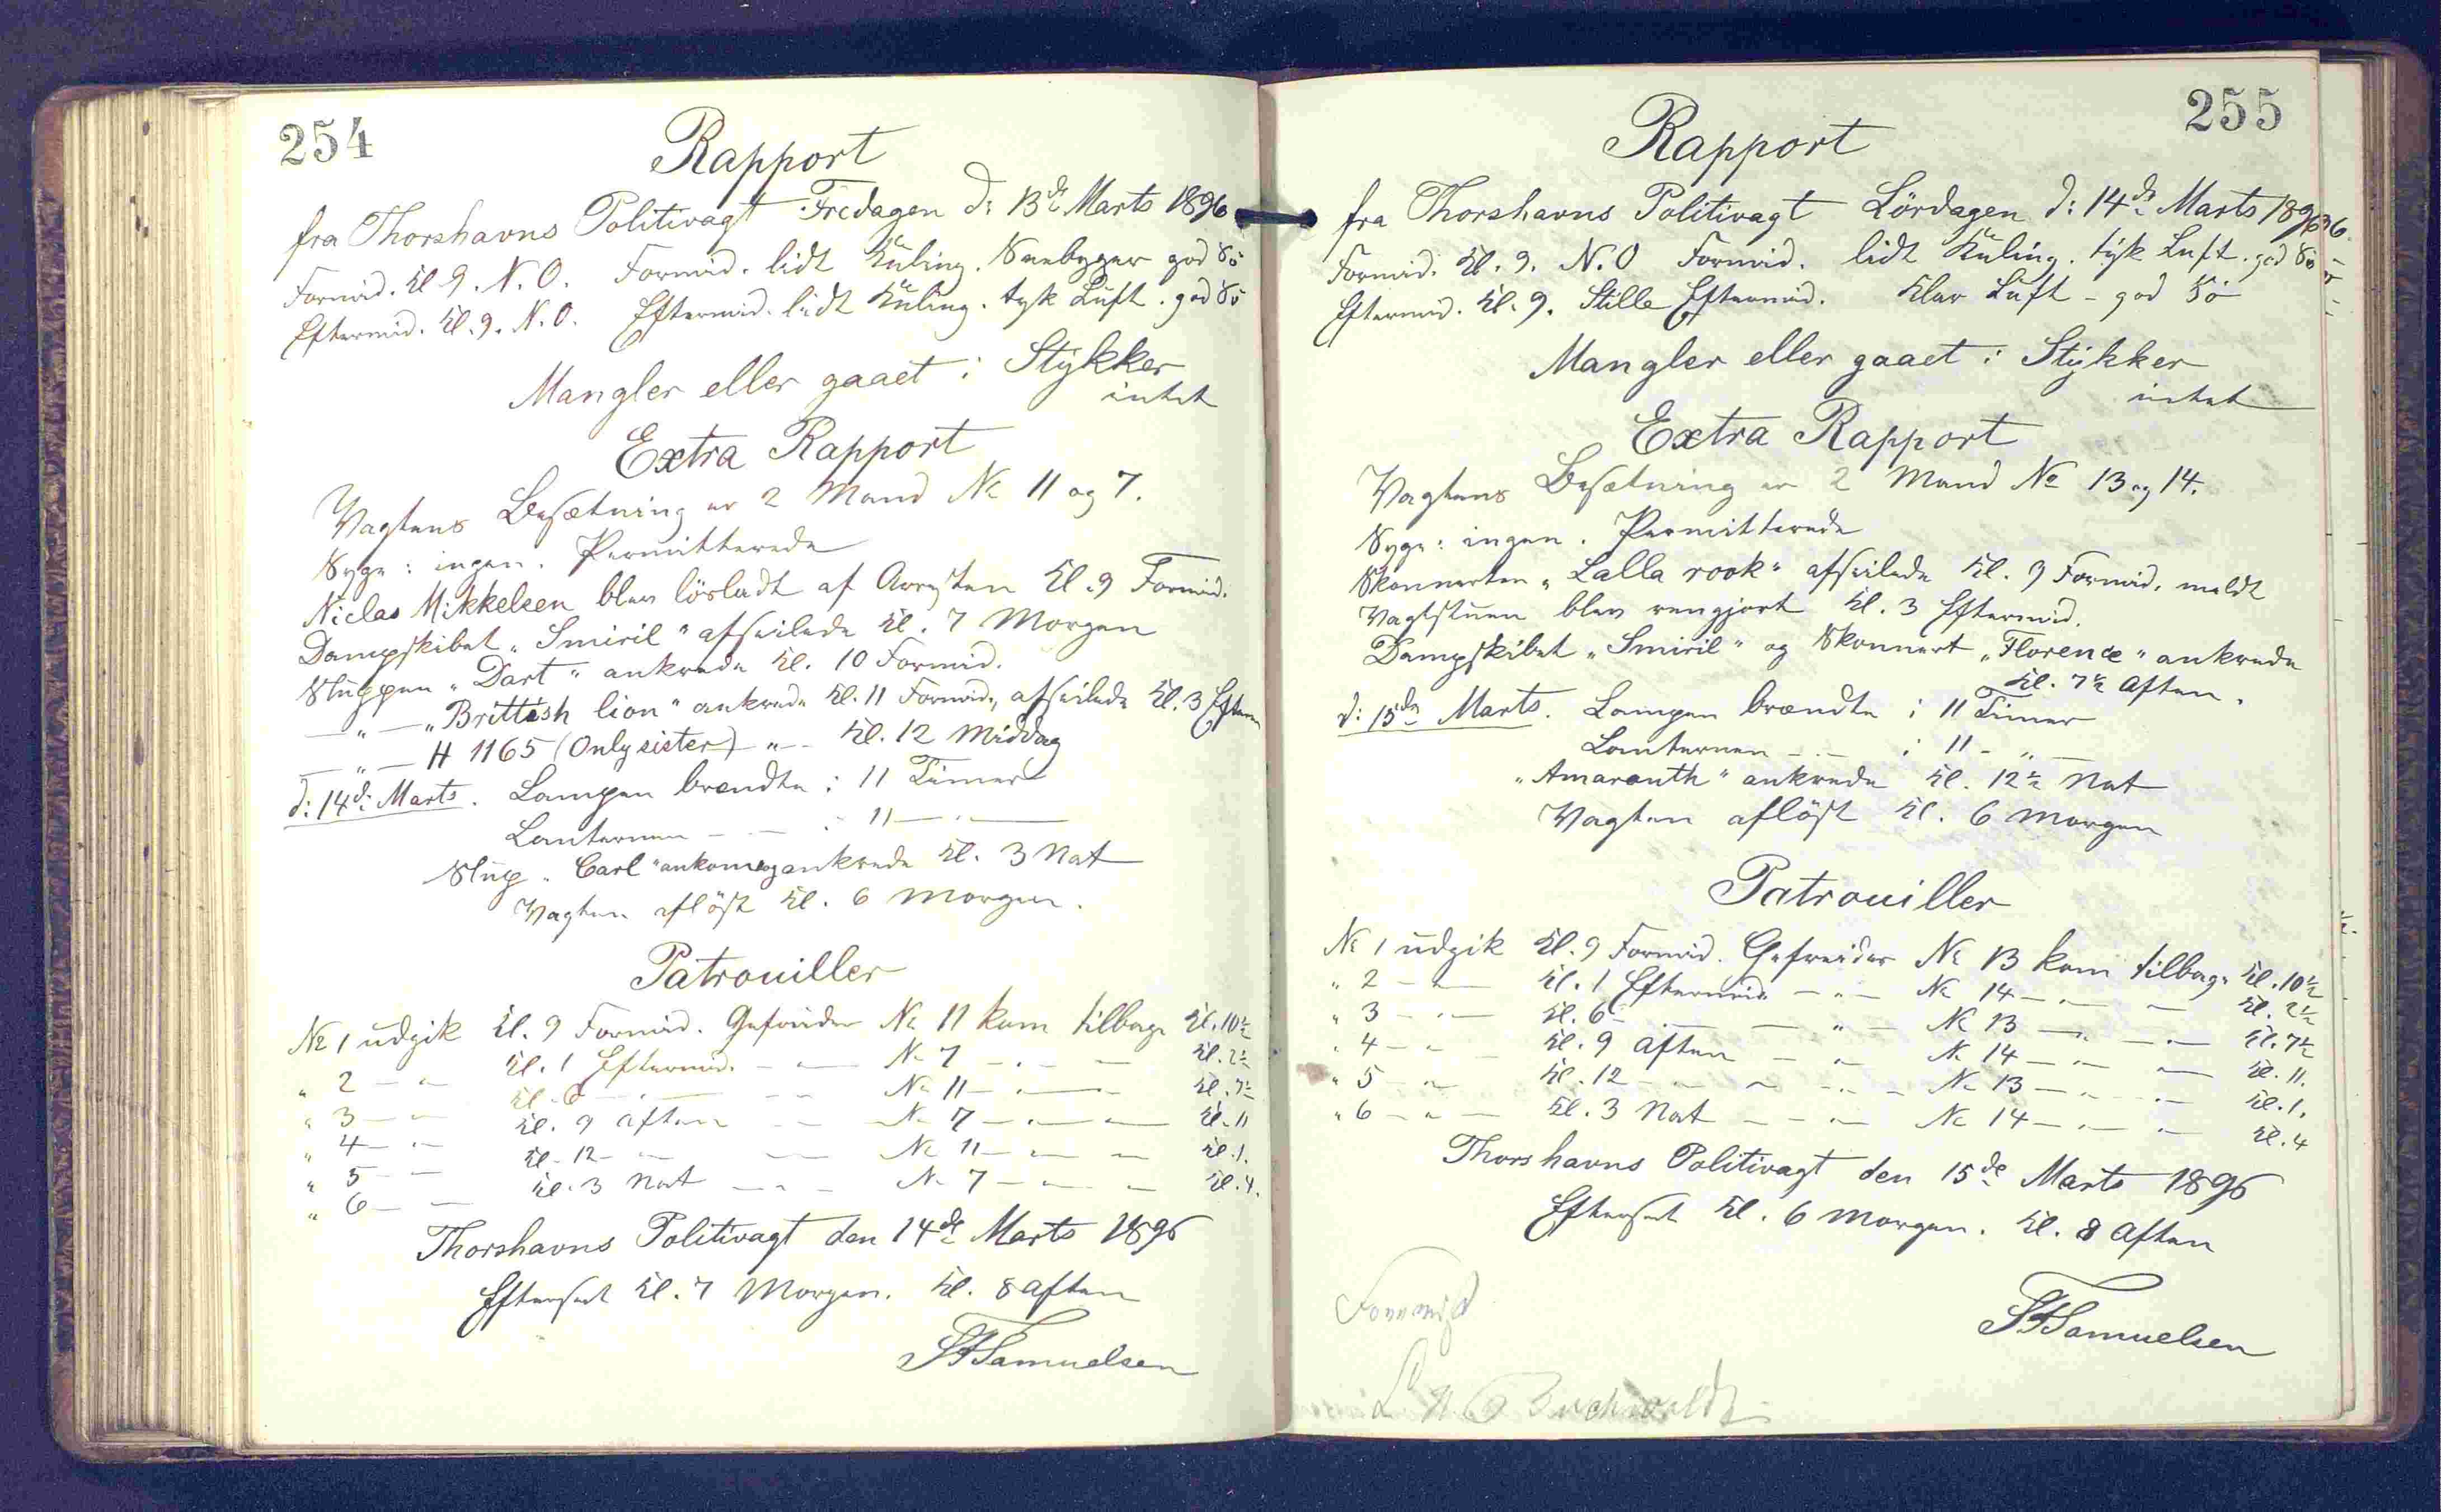 254
Rapport
fra Thorshavns Politivagt Fredagen d: 13de Marts 1896
Formid. Kl. 9. N.O. Formid. lidt Kuling. Sneebyger god Sö
Eftermid. Kl. 9. N.O. Eftermid. lidt Kuling. tyk Luft. god Sö
Mangler eller gaaet i Stykker
intet
Extra Rapport
Vagtens Besætning er 2 Mand No 11 og 7.
Syge: ingen. Permitterede
Niclas Mikkelsen blev lösladt af Arresten Kl. 9 Formid.
Dampskibet „Smiril“ afseilede Kl. 7 Morgen
Sluppen „Dart“ ankrede Kl. 10 Formid.
— „ — „Brittish lion“ ankrede Kl. 11 Formid., afseilede Kl. 3 Efterm
— „ — H 1165 (Only sister) — „ — Kl. 12 Middag
d: 14de Marts. Lampen brændte i 11 Timer
Lanternen — — i 11 — „ —
Slup „Carl“ ankom og ankrede Kl. 3 Nat
Vagten aflöst Kl. 6 Morgen.
Patrouiller
No 1 udgik Kl. 9 Formid. Gefreider No 11 kom tilbage Kl. 10½
„ 2 — „ Kl. 1 Eftermid. — „ — No 7 — „ — Kl. 2½
„ 3 — „ Kl. 6 — „ — No 11 — „ — Kl. 7½
„ 4 — „ Kl. 9 Aften — „ — No 7 — „ — Kl. 11
„ 5 — „ Kl. 12 — „ — No 11 — „ — Kl. 1.
„ 6 — „ Kl. 3 Nat — „ — No 7 — „ — Kl. 4.
Thorshavns Politivagt den 14de Marts 1896
Efterset Kl. 7 Morgen. Kl. 8 Aften
Samuelsen
255
Rapport
fra Thorshavns Politivagt Lördagen d: 14de Marts 1896
Formid. Kl. 9. N.O Formid. lidt Kuling. tyk Luft. god Sö
Eftermid. Kl. 9. Stille Eftermid. Klar Luft – god Sö
Mangler eller gaaet i Stykker
intet
Extra Rapport
Vagtens Besætning er 2 Mand No 13 og 14.
Syge: ingen. Permitterede
Skonnerten „Lalla rook“ afseilede Kl. 9 Formid. meldt
Vagtstuen blev rengjort Kl. 3 Eftermid.
Dampskibet „Smiril“ og Skonnert „Florence“ ankrede
Kl. 7½ Aften.
d: 15de Marts. Lampen brændte i 11 Timer
Lanternen — — i 11 — „ —
„Amaranth“ ankrede Kl. 12½ Nat
Vagten aflöst Kl. 6 Morgen
Patrouiller
No 1 udgik Kl. 9 Formid. Gefreider No 13 kom tilbage Kl. 10½
„ 2 — „ — Kl. 1 Eftermid. — „ — No 14 — „ — Kl. 2½
„ 3 — „ — Kl. 6 — „ — No 13 — „ — Kl. 7½
„ 4 — „ — Kl. 9 Aften — „ — No 14 — „ — Kl. 11.
„ 5 — „ — Kl. 12 — „ — No 13 — „ — Kl. 1.
„ 6 — „ — Kl. 3 Nat — „ — No 14 — „ — Kl. 4
Thorshavns Politivagt den 15de Marts 1896
Efterset Kl. 6 Morgen. Kl. 8 Aften
Samuelsen
Formid
Buchwaldt